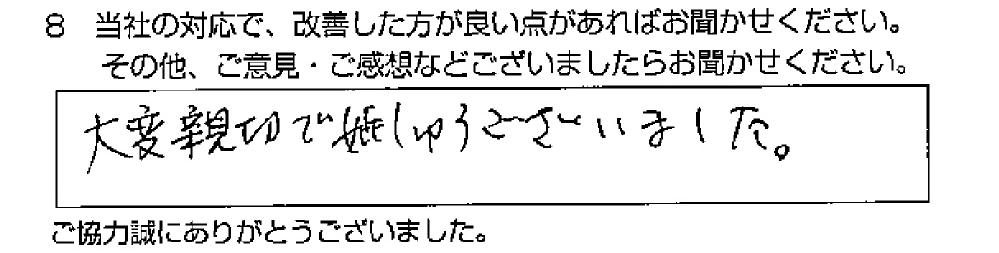 8 当社の対応で、改善した方が良い点があればお聞かせください。
その他、ご意見・ご感想などございましたらお聞かせください。
大変親切で嬉しゅうございました。
ご協力誠にありがとうございました。